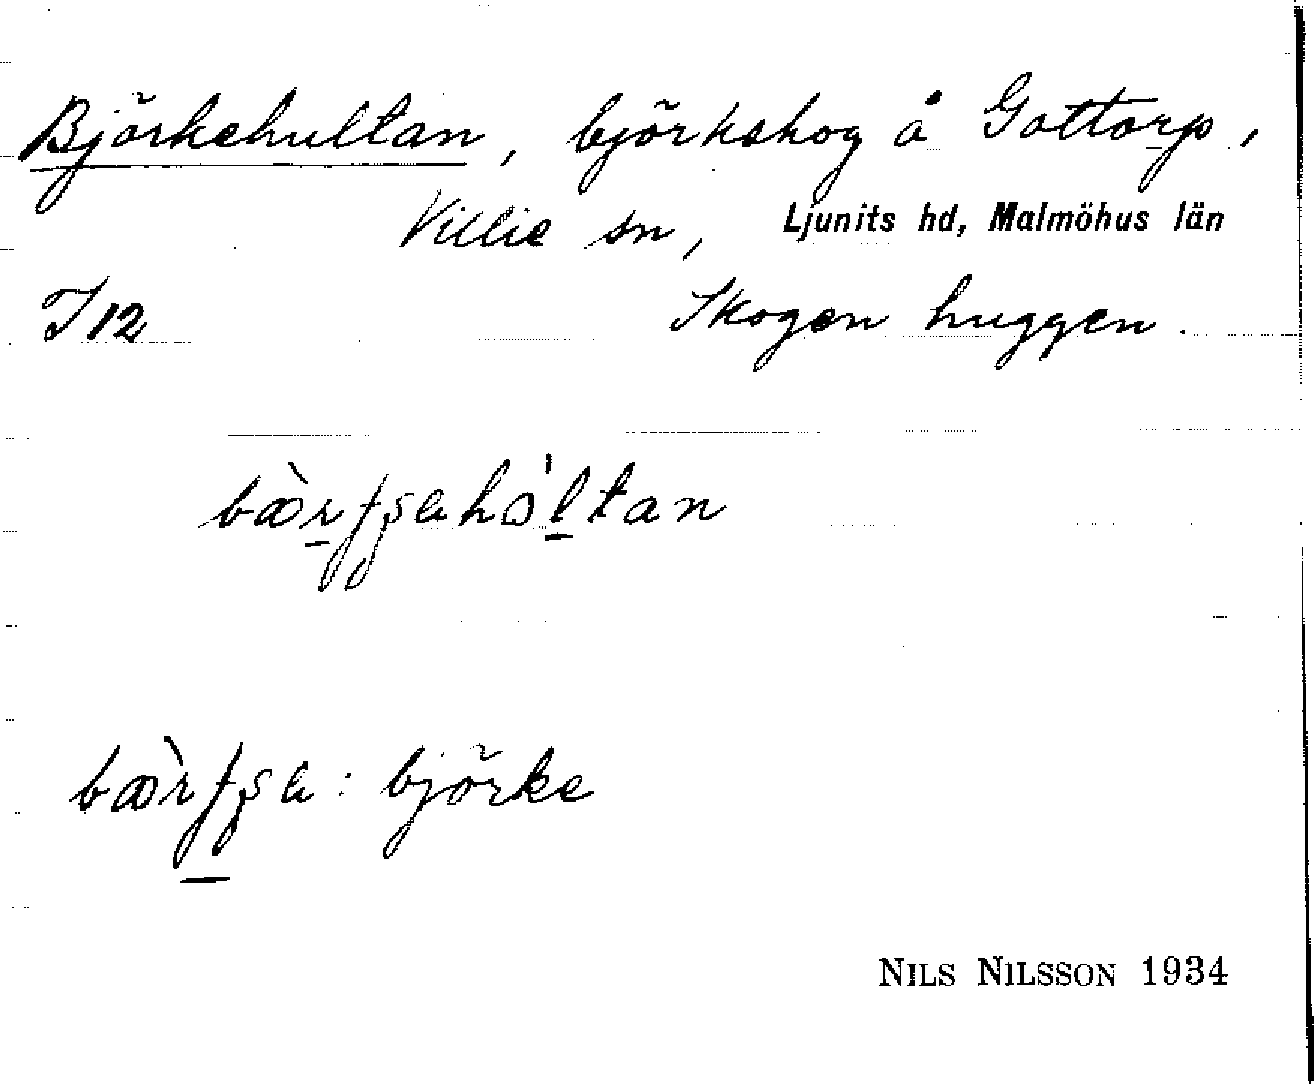 Björkehultan, björkskog å Gottorp,
Villie sn, Ljunits hd, Malmöhus län
I 12 Skogen huggen.
björke
NILS NILSSON 1934